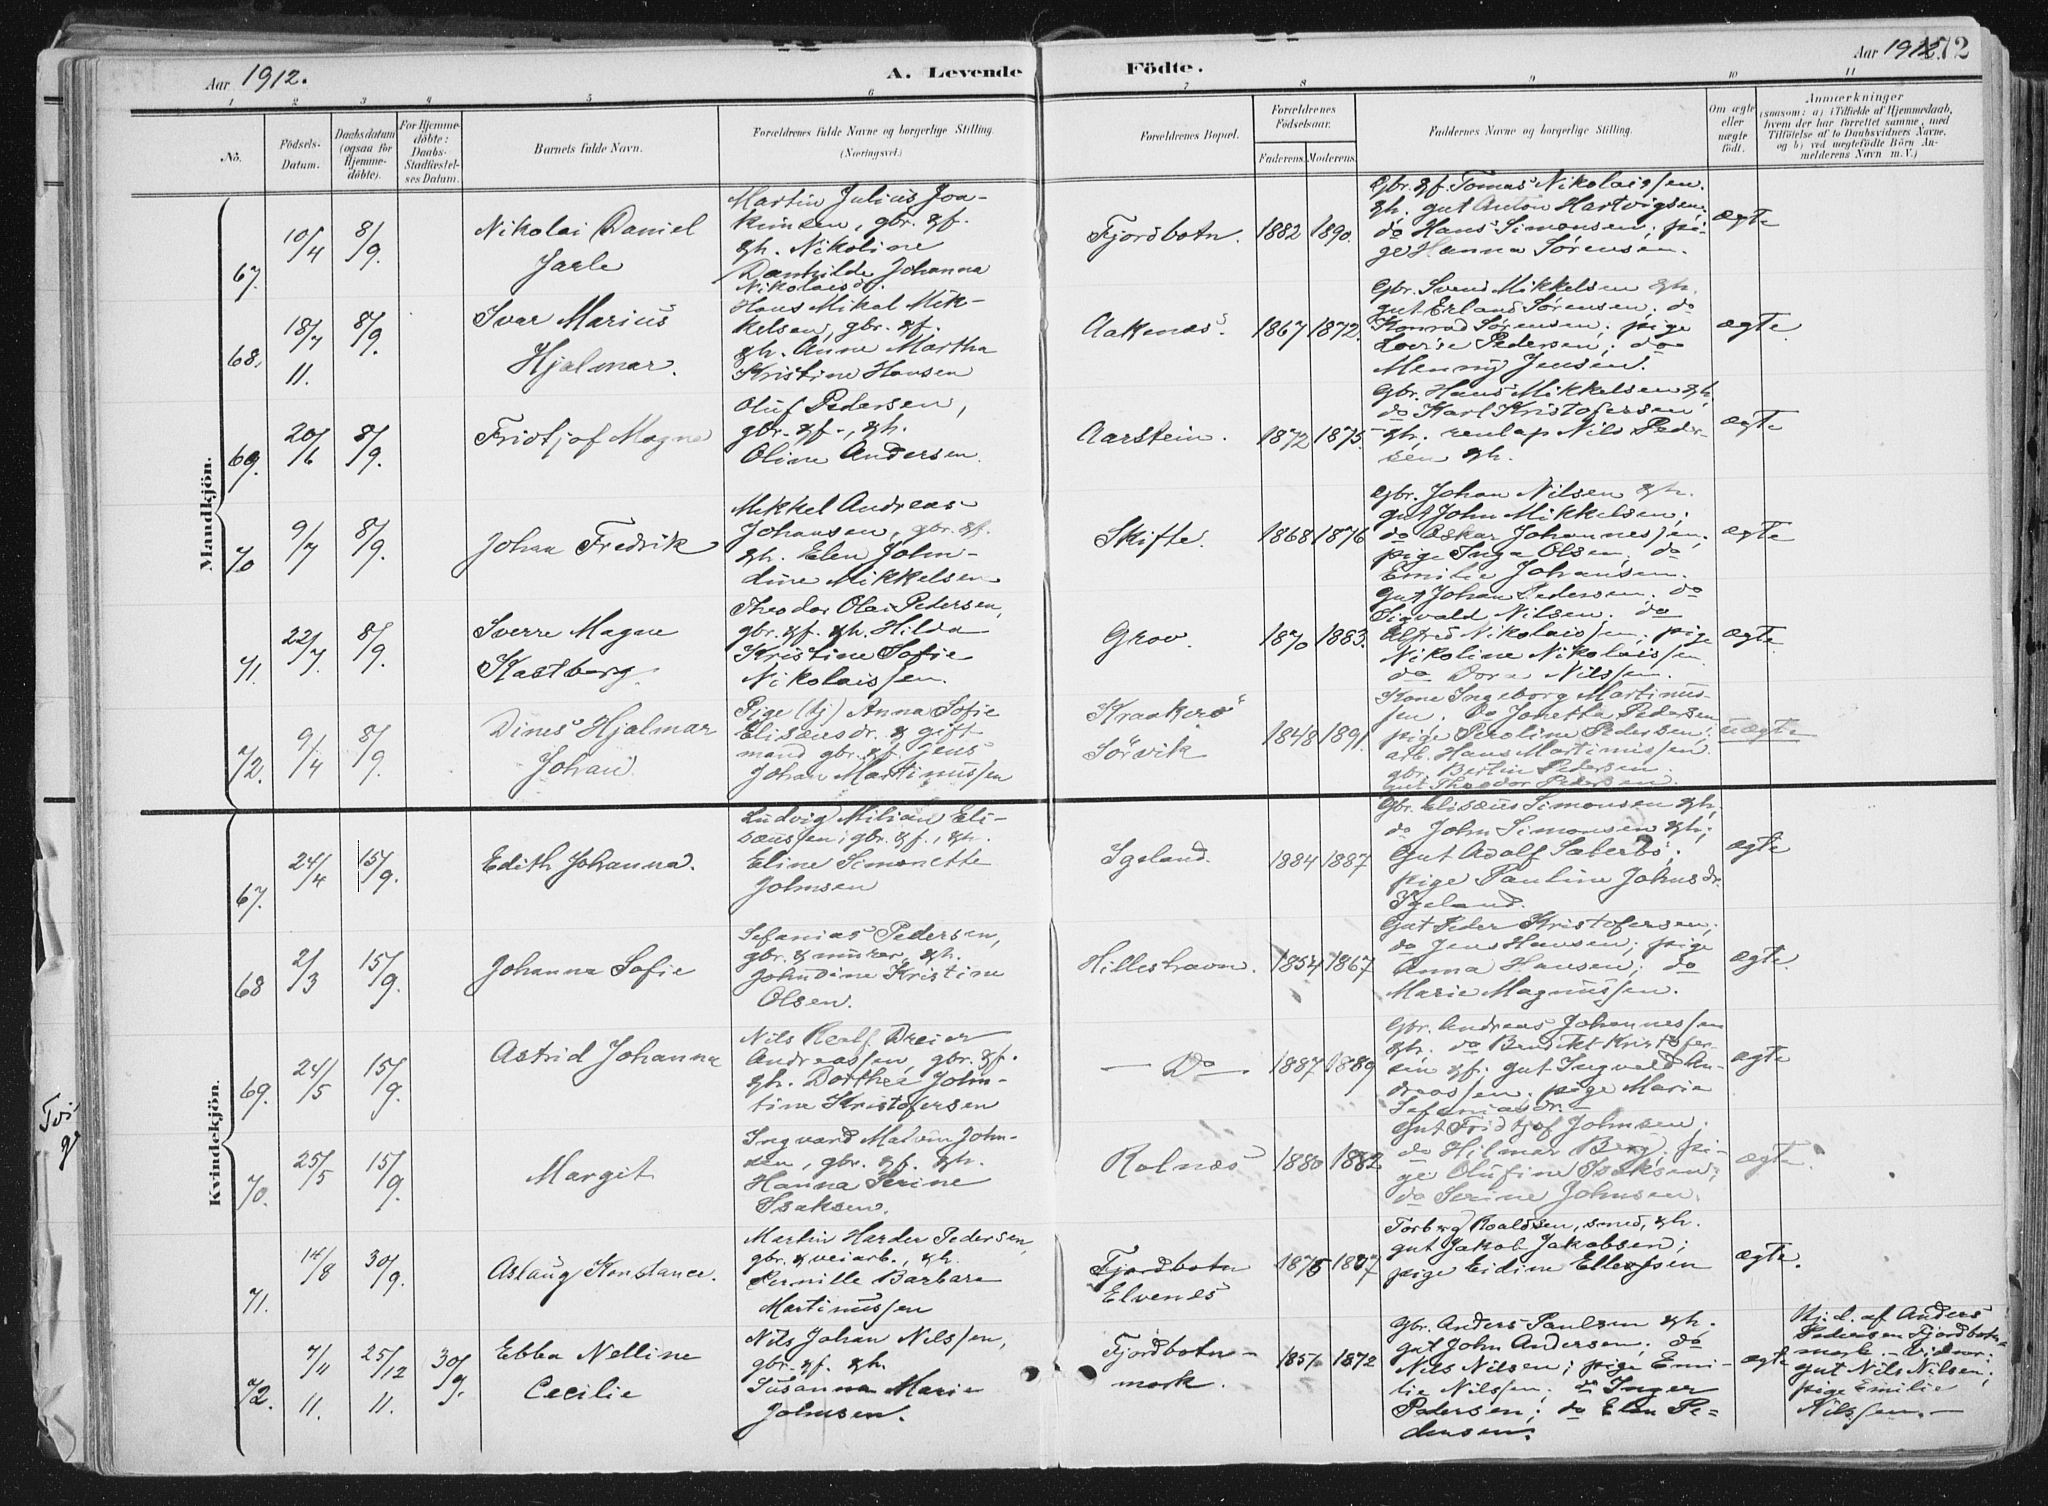 Aar 1912.
A. Levende Födte.
Aar 1912.
172
1 2 3 4 5 6 7 8 9 10 11
No.
Födsels-Datum.
Daabsdatum (ogsaa for Hjemme-döbte).
For Hjemme-döbte: Daabs-Stadfæstel-ses Datum.
Barnets fulde Navn.
Forældrenes fulde Navne og borgerlige Stilling.
(Næringsvei.)
Forældrenes Bopæl.
Forældrenes Födselsaar.
Faderens. Moderens.
Faddernes Navne og borgerlige Stilling.
Om ægte eller uægte födt.
Anmærkninger
(saasom: a) i Tilfælde af Hjemmedaab,
hvem der har forrettet samme, med
Tilföielse af to Daabsvidners Navne,
og b) ved uegtefödte Börn An-
melderens Navn m. V.)
Mandkjön.
67. 10/4 8/9. Nikolai Daniel
Jarle
Martin Julius Joa-
kimsen, gbr. &f.
&h. Nikoline
Danhilda Johanna
Nikolaisd.
Fjordbotn. 1882 1890.
Gbr. &f. Tomas Nikolaissen.
&h. gut Anton Hartvigsen;
do Hans Simonsen; pi-
ge Hanna Sørensen.
ægte
68. 18/7 11. 8/9. Ivar Marius
Hjalmar.
Hans Mikal Mik-
kelsen, gbr. &f.
&h. Anne Martha
Kristine Hansen
Aaknes. 1867 1872.
Gbr. Svend Mikkelsen &h.
gut Erland Sørensen; do
Konrad Sørensen; pige
Lovise Pedersen; do
Menny Jensen.
ægte.
69. 20/6 8/9. Fridtjof Magne
Oluf Pedersen,
gbr. &f., &h.
Oline Andersen.
Aarstein. 1872 1875.
Gbr. Hans Mikkelsen &h.
do Karl Kristofersen
&h. Nils Peder-
sen &h.
ægte
70 9/7 8/9. Johan Fredrik
Mikkel Andreas
Johansen, gbr. &f.
&h. Elen John-
dine Mikkelsen
Skifte. 1868 1876
Gbr. Johan Nilsen &h.
gut John Mikkelsen;
do Oskar Johannessen;
pige Inga Olsen; do
Emilie Johansen.
ægte
71. 22/7 8/9. Sverre Magne
Kastberg.
Theodor Olai Pedersen,
gbr. &f. &h. Hilda
Kristine Sofie
Nikolaissen.
Grov. 1870 1883.
Gut Johan Pedersen. do
Sigvald Nilsen. do
Alfred Nikolaissen; pige
Nikoline Nikolaissen.
do Dora Nilssen.
ægte
72. 9/4 8/9. Dines Hjalmar
Johan.
Pige (tj) Anna Sofie
Elisæusdr. & gift
mand gbr. &f. Jens
Johan Martinussen
Kraakrø
Sörvik 1848 1891.
Kone Ingeborg Martinus-
sen. Do Jonetta Pedersen
pige Peroline Pedersen;
arb. Hans Martinussen.
gbr. Bertin Pedersen.
gut Theodor Pedersen.
uægte
Kvindekjön.
67. 24/4 15/9. Edith Johanna.
Ludvig Milian Eli-
sæussen; gbr. &f., &h.
Eline Simonette
Johnsen
Igeland. 1884 1887
Gbr. Elisæus Simonsen &h.
do John Simonsen &h;
Gut Adolf Sæterbö;
pige Pauline Johnsdr.
Igeland.
ægte
68 2/3 15/9. Johanna Sofie
Sefanias Pedersen,
gbr. & murer, &h.
Johndine Kristine
Olsen.
Hilleshavn. 1854 1867
Gut Peder Kristofersen;
do Jens Hansen; pige
Anna Hansen; do
Marie Magnussen.
ægte.
69. 24/5 15/9. Astrid Johanna
Nils Rolf Dreier
Andreassen, gbr. &f.
&h. Dorthea John-
tine Kristofersen
— Do — 1887 1889
Gbr. Andreas Johannessen
&h. do Benedikt Kristofer-
sen &f. gut Ingvald An-
dreassen. pige Marie
Sefaniasdr. –
ægte
70. 25/5 15/9. Margit
Ingvard Matvin John-
sen, gbr. &f. &h.
Hanna Serine
Isaksen.
Rolnes 1880 1882
Gut Fridtjof Johnsen;
do Hilmar Berg. pi-
ge Olufine Isaksen;
do Serine Johnsen.
ægte.
71. 14/8 30/9. Aslaug Konstance.
Martin Harder Pedersen,
gbr. & veiarb., &h.
Pernille Barbara
Martinussen
Fjordbotn
Elvenes 1875 1877
Torberg Roaldsen, smed, &h.
gut Jakob Jakobsen;
pige Eidine Ellefsen
ægte.
72. 7/11 11. 25/12 11. 30/9. Ebba Nelline
Cecilie
Nils Johan Nilssen,
gbr. &f. &h.
Susanna Marie
Johnsen.
Fjordbotn-
mark. 1857 1872
Gbr. Anders Paulsen &h.
gut John Andersen. do
Nils Nilsen; pige Emi-
lie Nilssen; do Inger
Pedersen; do Elen Pe-
dersen.
ægte
Hj. d. af Anders
Pedersen Fjordbotn-
mark. – Vidner:
gut Nils Nilsen;
pige Emilie
Nilssen. –